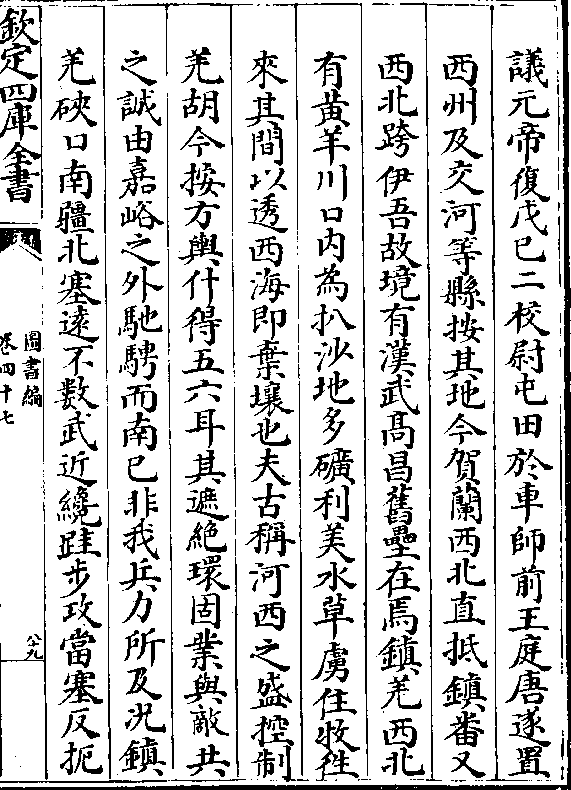 議元帝復戊已二校尉屯田於車師前王庭唐遂置
西州及交河等縣按其地今賀蘭西北直抵鎮番又
西北跨伊吾故境有漢武高昌舊壘在焉鎮羌西北
有黃羊川口内為扒沙地多礦利美水草虜住牧徃
來其間以透西海即棄壤也夫古稱河西之盛控制
羌胡今按方輿什得五六耳其遮絶環固業與敵共
之誠由嘉峪之外馳騁而南已非我兵力所及況鎮
羌硤口南疆北塞逺不數武近纔跬步攻當塞反扼
欽定四庫全書
圖書編
卷四十七
六十九